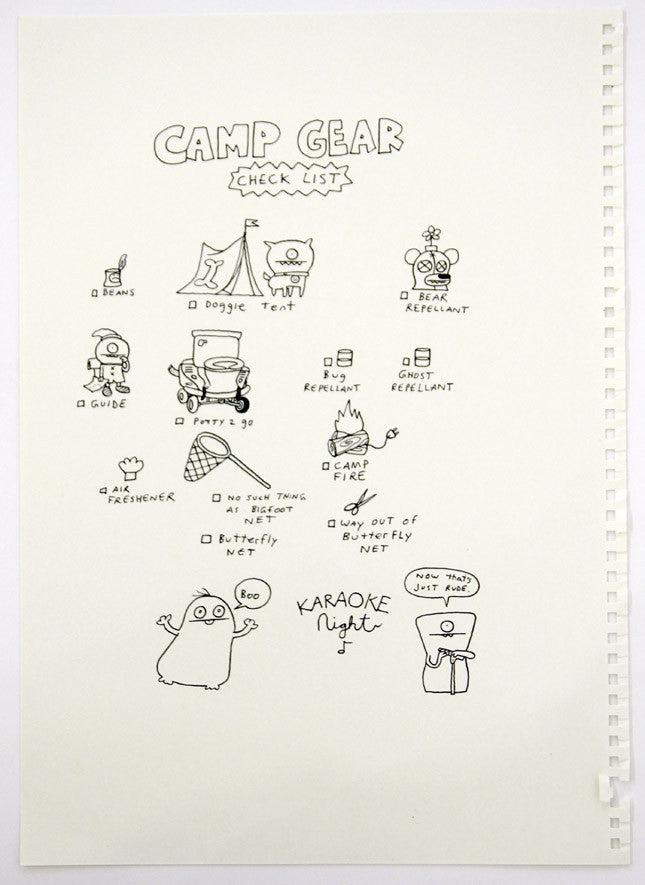 CAMP GEAR
CHECK LIST
BEANS
Doggie Tent
BEAR
REPELLANT
GUIDE
POTTY 2 go
Bug
REPELLANT
GHOST
REPELLANT
CAMP
FIRE
AIR
FRESHENER
NO SUCH THING
AS BIGFOOT
NET
Butterfly
NET
WAY OUT OF
ButterFLY
NET
BOO
KARAOKE
Night
NOW that's
JUST RUDE.